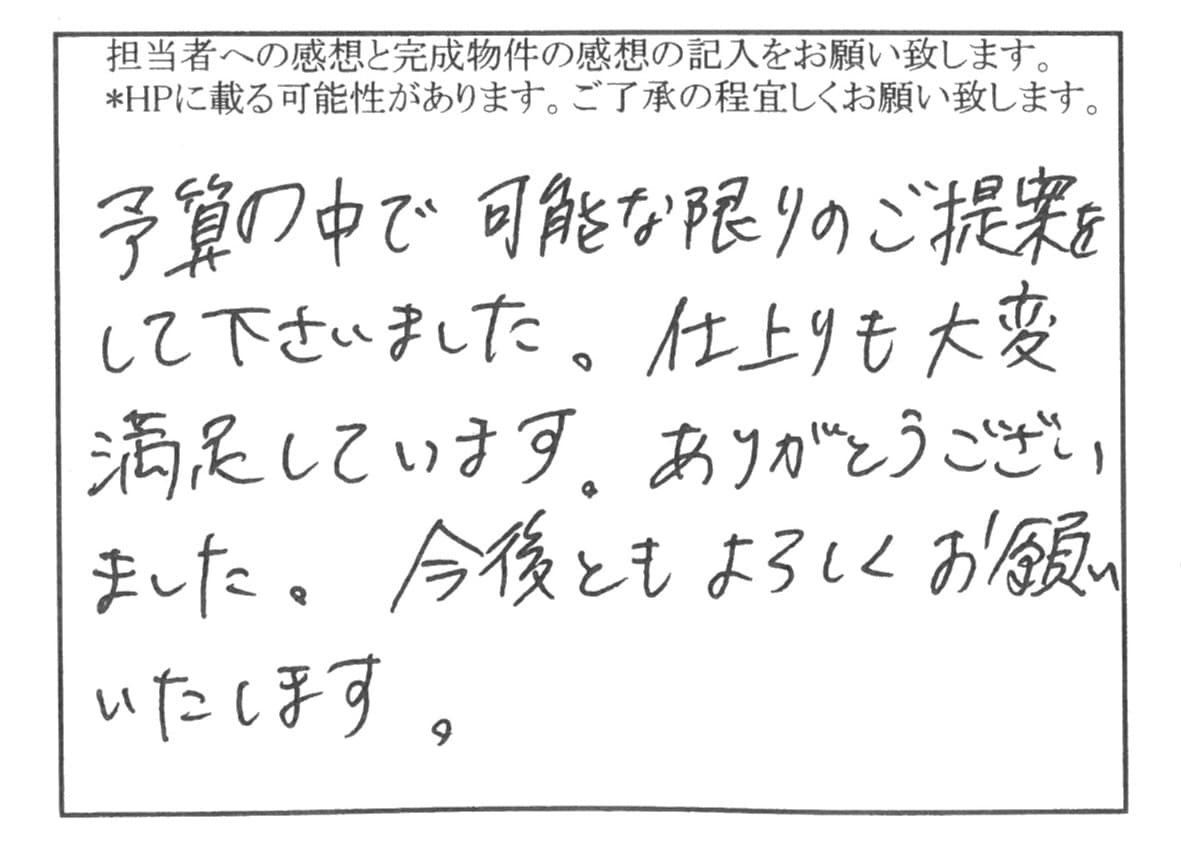 担当者への感想と完成物件の感想の記入をお願い致します。
*HPに載る可能性があります。ご了承の程宜しくお願い致します。
予算の中で可能な限りのご提案を
して下さいました。仕上りも大変
満足しています。ありがとうござい
ました。今後ともよろしくお願い
いたします。